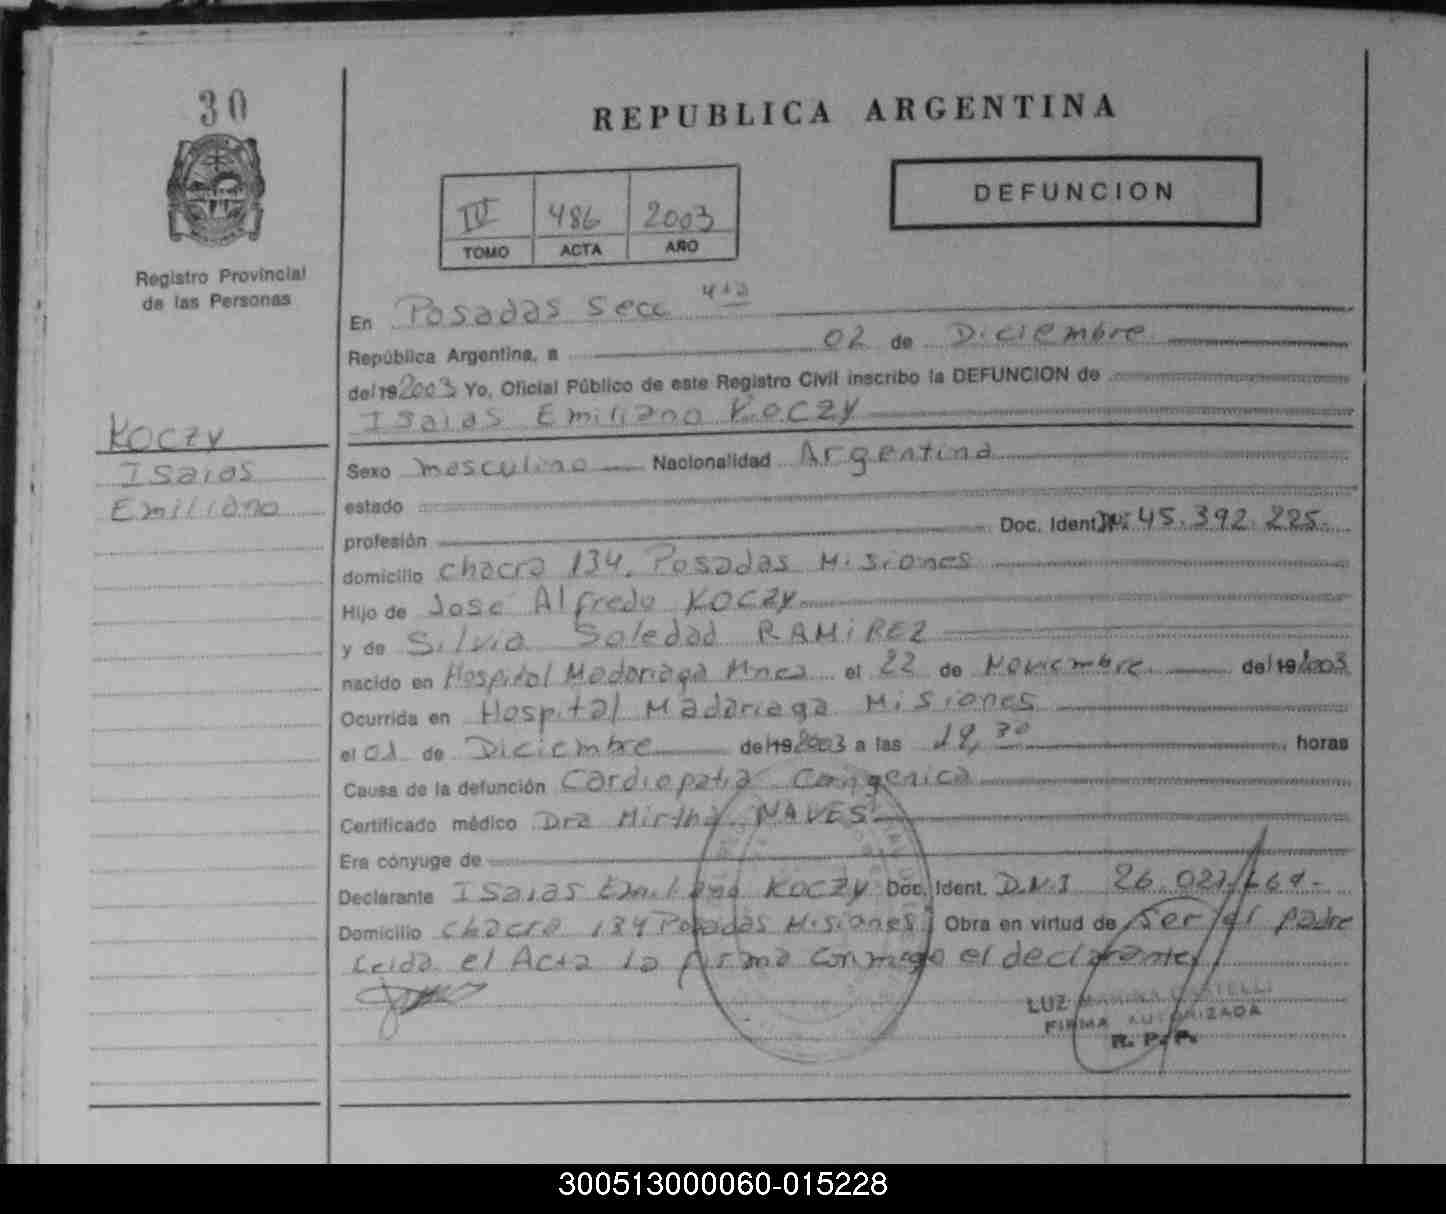 30
REPUBLICA ARGENTINA
DEFUNCION
IV 486 2003
TOMO ACTA AÑO
Registro Provincial
de las Personas
En Posadas Secc 4ta
República Argentina, a 02 de Diciembre
del 19 2003 Yo, Oficial Público de este Registro Civil inscribo la DEFUNCION de
Isaias Emiliano KOCZY
KOCZY
Isaias
Emiliano
Sexo masculino Nacionalidad Argentina
estado
profesión Doc. Ident. Nº 45.392.225.
domicilio chacra 134. Posadas Misiones
Hijo de Jose Alfredo KOCZY
y de Silvia Soledad RAMIREZ
nacido en Hospital Madariaga Mnes el 22 de Noviembre del 19 2003
Ocurrida en Hospital Madariaga Misiones
el 01 de Diciembre del 19 2003 a las horas
Causa de la defunción Cardiopatia Congenica
Certificado médico Dra Mirtha NAVES
Era cónyuge de
Declarante Isaias Emiliano KOCZY Doc. Ident. D.N.I 26.
Domicilio chacra 134 Posadas Misiones Obra en virtud de Ser el padre
Leida el Acta la firma conmigo el declarante
LUZ MARINA
FIRMA AUTORIZADA
R. P. P.
300513000060-015228